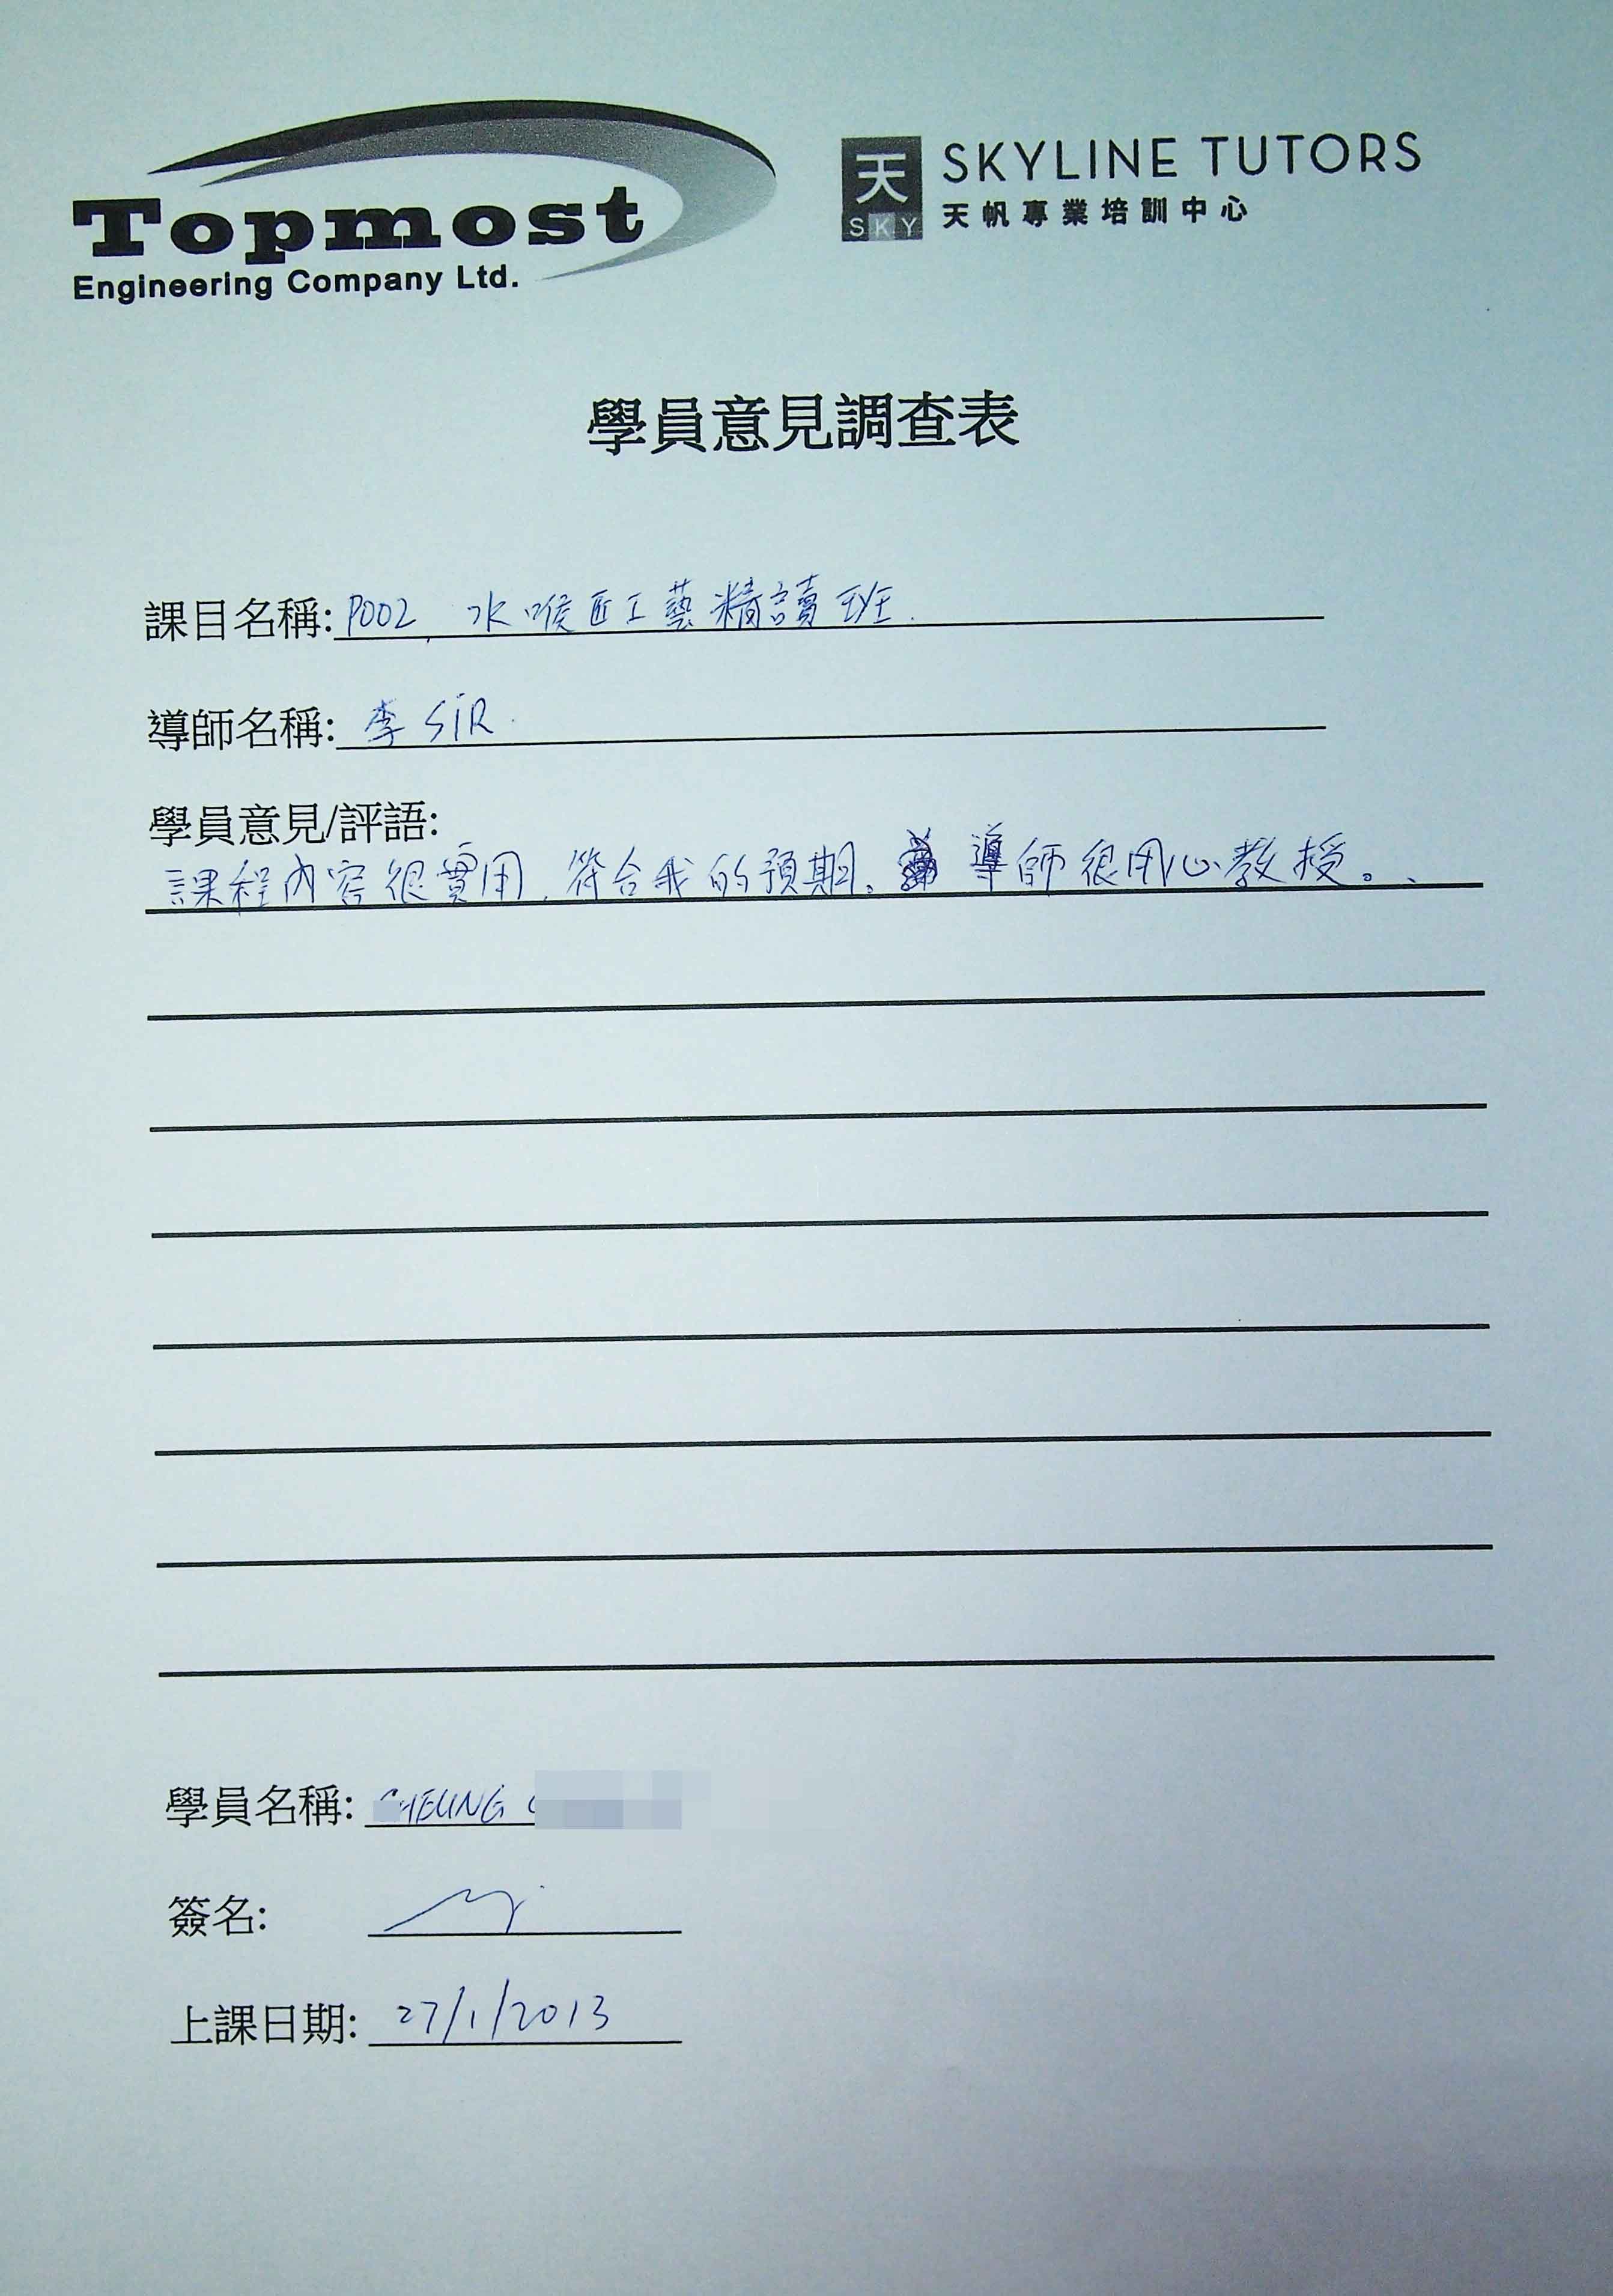 Topmost
Engineering Company Ltd.
天
SKY
SKYLINE TUTORS
天帆專業培訓中心
學員意見調查表
課目名稱: P002, 水喉匠工藝精讀班.
導師名稱: 李 SIR.
學員意見/評語:
課程內容很實用, 符合我的預期。 導師很用心教授。
學員名稱: CHEUNG
簽名:
上課日期: 27/1/2013